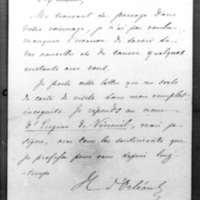 Me trouvant de passage dans
votre voisinage, je n'ai pas voulu
manquer l'occasion de savoir de
vos nouvelles et de causer quelques
instants avec vous.
Je porte cette lettre qui me sert
de carte de visite dans mon complet
incognito. Je réponds au nom
d'Eugène de
signe, avec tous les sentiments que
je professe pour vous depuis long-
temps
H d'Orléans